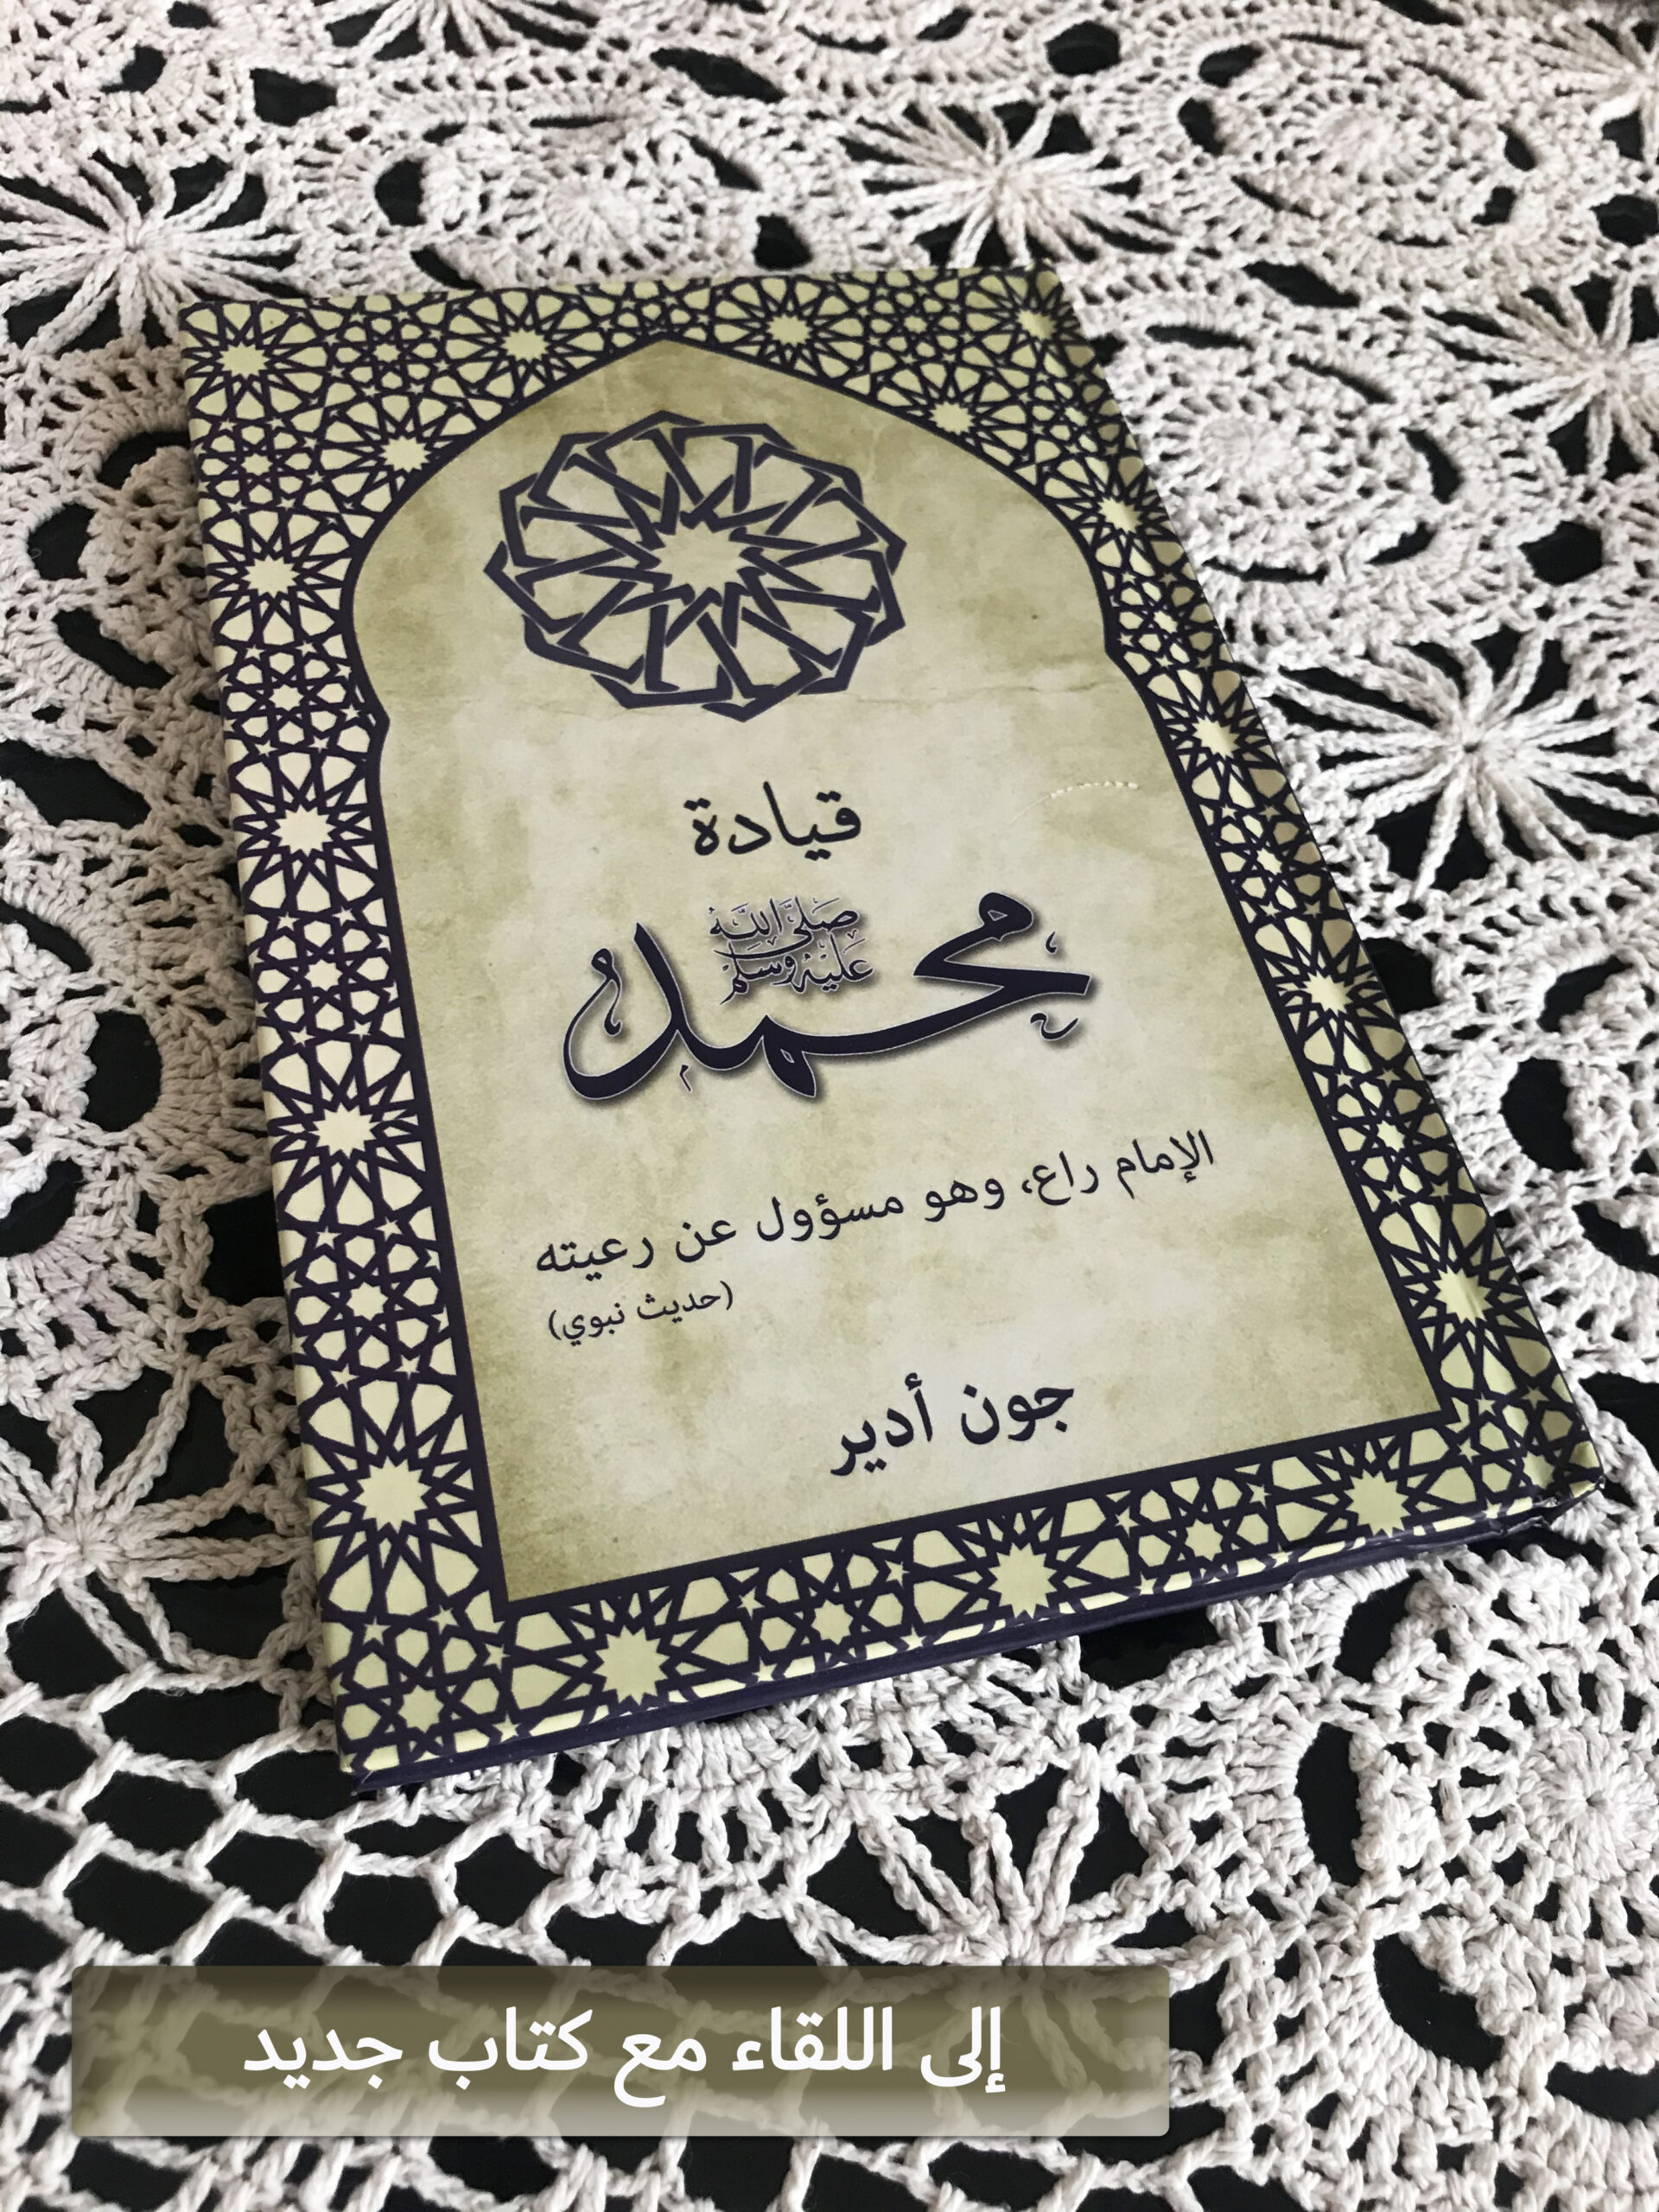 قيادة
محمد
صَلَّى اللَّهُ
عَلَيْهِ وَسَلَّمَ
الإمام راع، وهو مسؤول عن رعيته
(حديث نبوي)
جون أدير
إلى اللقاء مع كتاب جديد